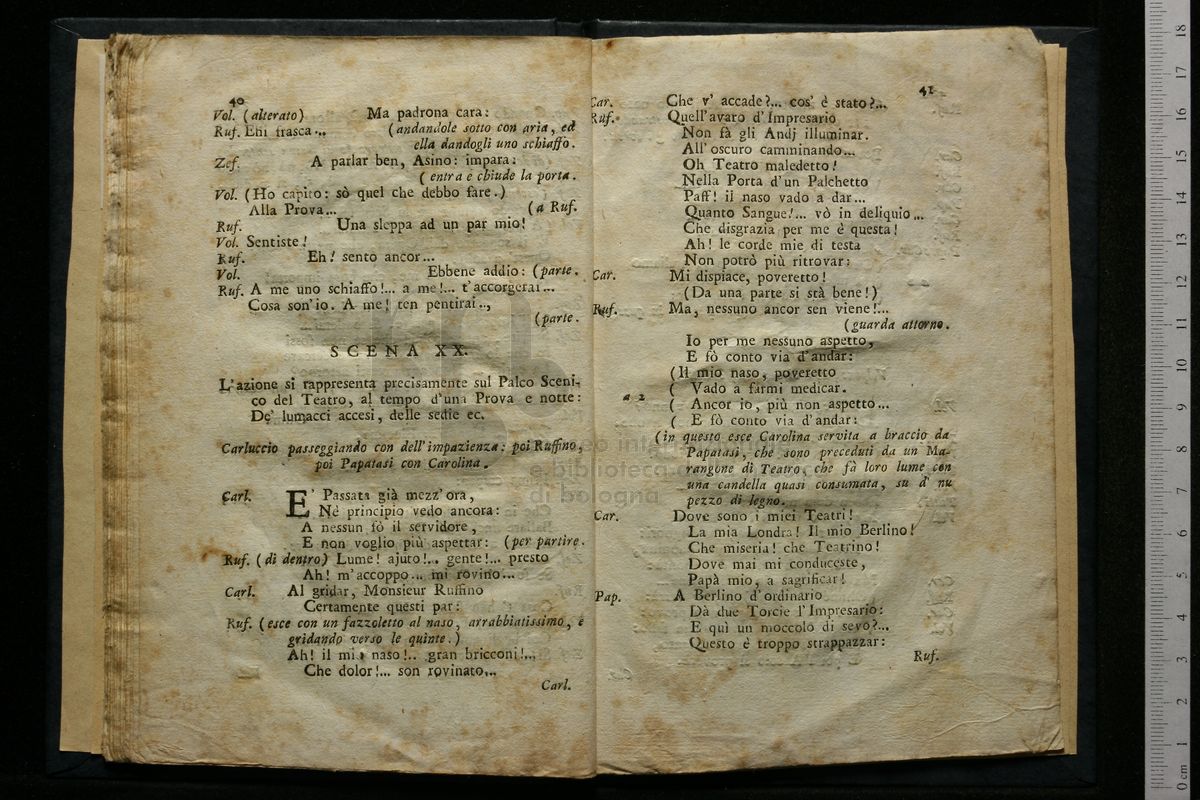 40
Vol. (alterato) Ma padrona cara:
Ruf. Ehi frasca... (andandole sotto con aria, ed
ella dandogli uno schiaffo.
Zef. A parlar ben, Asino: impara:
( entra e chiude la porta.
Vol. (Ho capito: sò quel che debbo fare.)
Alla Prova... (a Ruf.
Ruf. Una sleppa ad un par mio!
Vol. Sentiste!
Ruf. Eh! sento ancor...
Vol. Ebbene addio: (parte.
Ruf. A me uno schiaffo!... a me!... t'accorgerai...
Cosa son'io. A me! ten pentirai..,
(parte.
SCENA XX.
L'azione si rappresenta precisamente sul Palco Sceni-
co del Teatro, al tempo d'una Prova e notte:
De' lumacci accesi, delle sedie ec.
Carluccio passeggiando con dell'impazienza: poi Ruffino,
poi Papatasi con Carolina.
Carl. E' Passata già mezz'ora,
Nè principio vedo ancora:
A nessun fò il servidore,
E non voglio più aspettar: (per partire.
Ruf. (di dentro) Lume! ajuto!... gente!... presto
Ah! m'accoppo... mi rovino...
Carl. Al gridar, Monsieur Ruffino
Certamente questi par:
Ruf. (esce con un fazzoletto al naso, arrabbiatissimo, e
gridando verso le quinte.)
Ah! il mio naso!.. gran bricconi!...
Che dolor!... son rovinato...
Carl.
41
Car. Che v' accade?... cos' è stato?...
Ruf. Quell'avaro d'Impresario
Non fà gli Andj illuminar.
All' oscuro camminando...
Oh Teatro maledetto!
Nella Porta d'un Palchetto
Paff! il naso vado a dar...
Quanto Sangue!... vò in deliquio...
Che disgrazia per me è questa!
Ah! le corde mie di testa
Non potrò più ritrovar:
Car. Mi dispiace, poveretto!
(Da una parte si stà bene!)
Ruf. Ma, nessuno ancor sen viene!...
(guarda attorno.
Io per me nessuno aspetto,
E fò conto via d'andar:
(Il mio naso, poveretto
( Vado a farmi medicar.
a 2 ( Ancor io, più non aspetto...
( E fò conto via d'andar:
(in questo esce Carolina servita a braccio da
Papatasi, che sono preceduti da un Ma-
rangone di Teatro, che fà loro lume con
una candella quasi consumata, su d' nu
pezzo di legno.
Car. Dove sono i miei Teatri!
La mia Londra! Il mio Berlino!
Che miseria! che Teatrino!
Dove mai mi conduceste,
Papà mio, a sagrificar!
Pap. A Berlino d'ordinario
Dà due Torcie l'Impresario:
E quì un moccolo di sevo?...
Questo è troppo strappazzar:
Ruf.